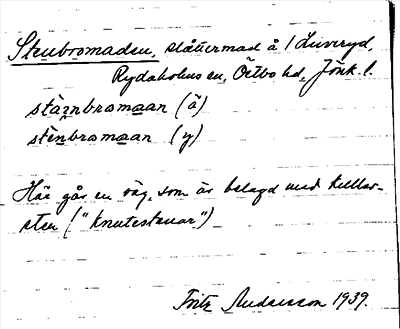 Stenbromaden, slåttermad å 1 Luveryd,
Rydaholms sn, Östbo hd, Jönk. l.
stäinbromaan (ä)
stènbromaan (y)
Här går en väg, som är belagd med kuller-
sten ("knutestenar")
Fritz Andersson 1939.